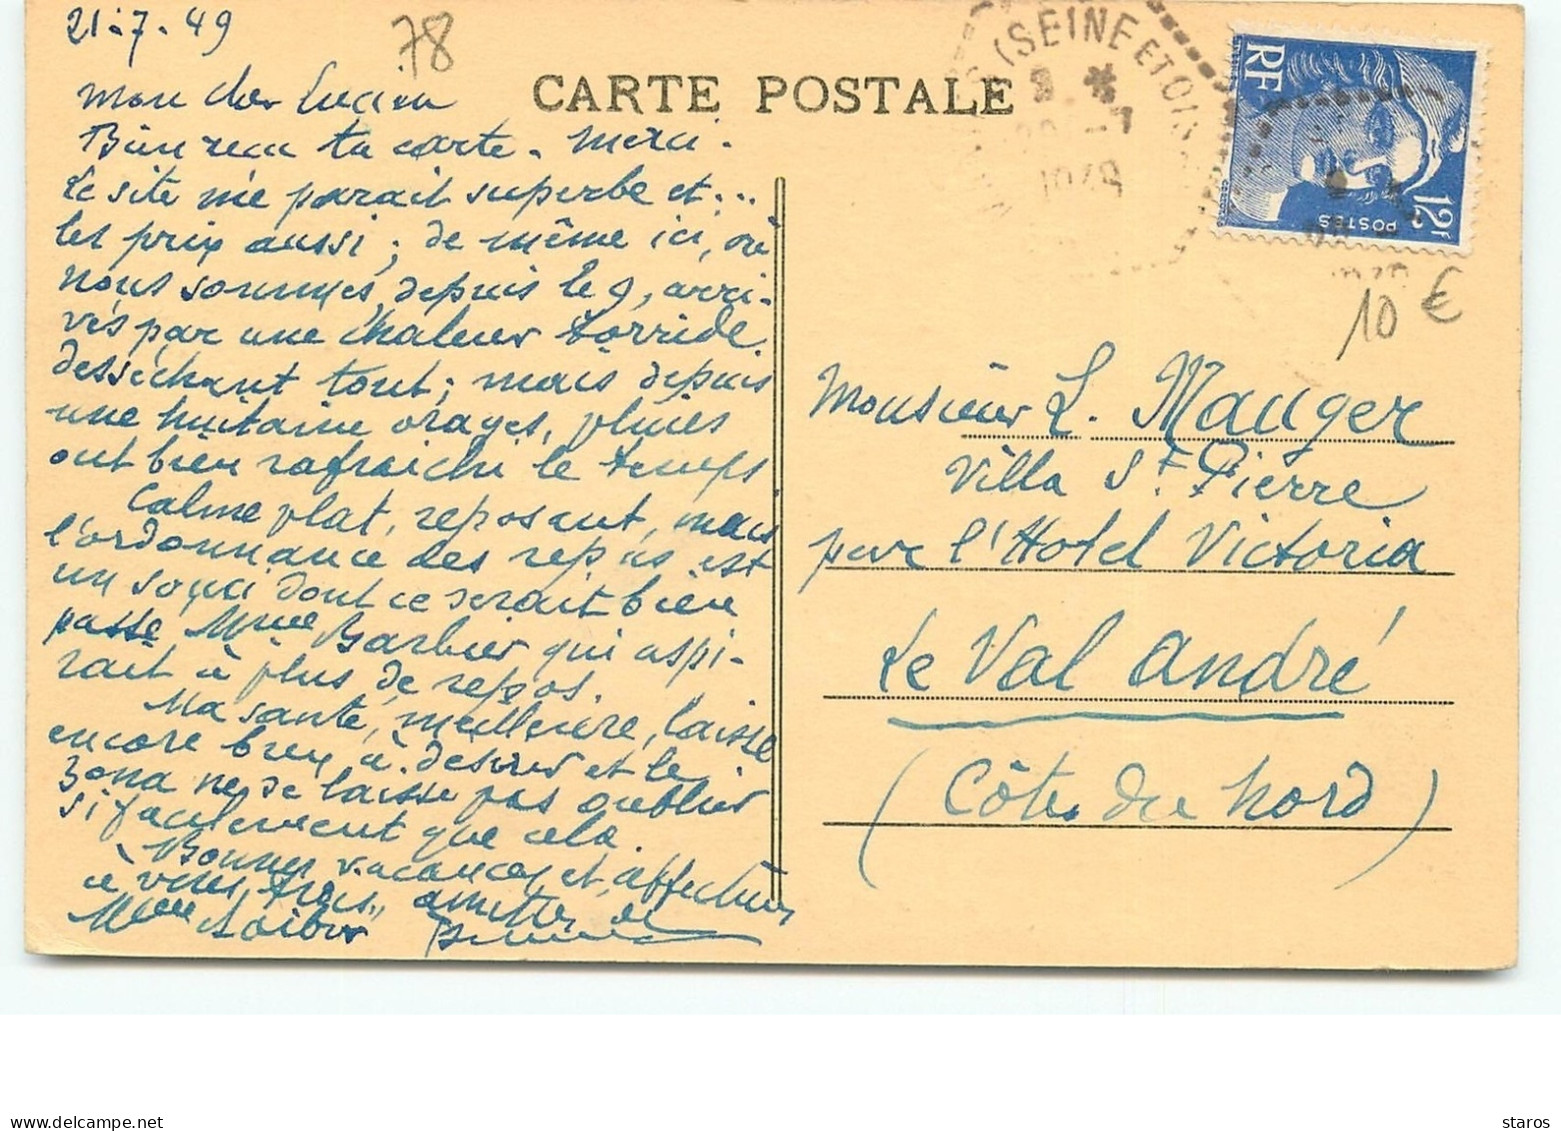 21-7-49
78
CARTE POSTALE
(SEINE ET OI
RF
POSTES
12F
10 €
Mon cher Lucien
Bien reçu ta carte. Merci.
Le site me parait superbe et...
les prix aussi; de même ici, où
nous sommes depuis le 9, arri-
vés par une chaleur torride
desséchant tout; mais depuis
une huitaine orages, pluies
ont bien rafraichi le temps
Calme plat, reposant, mais
l'ordonnance des repas est
un souci dont ce serait bien
passé Mme Barbier qui aspi-
rait à plus de repos.
Ma santé, meilleure, laisse
encore bien à désirer et le
zona ne se laisse pas oublier
si facilement que cela.
Bonnes vacances et affectueu
à vous trois, amitiés de
Mme
Monsieur L. Mauger
Villa St Pierre
par l'Hotel Victoria
Le Val André
(Côtes du Nord)
staros